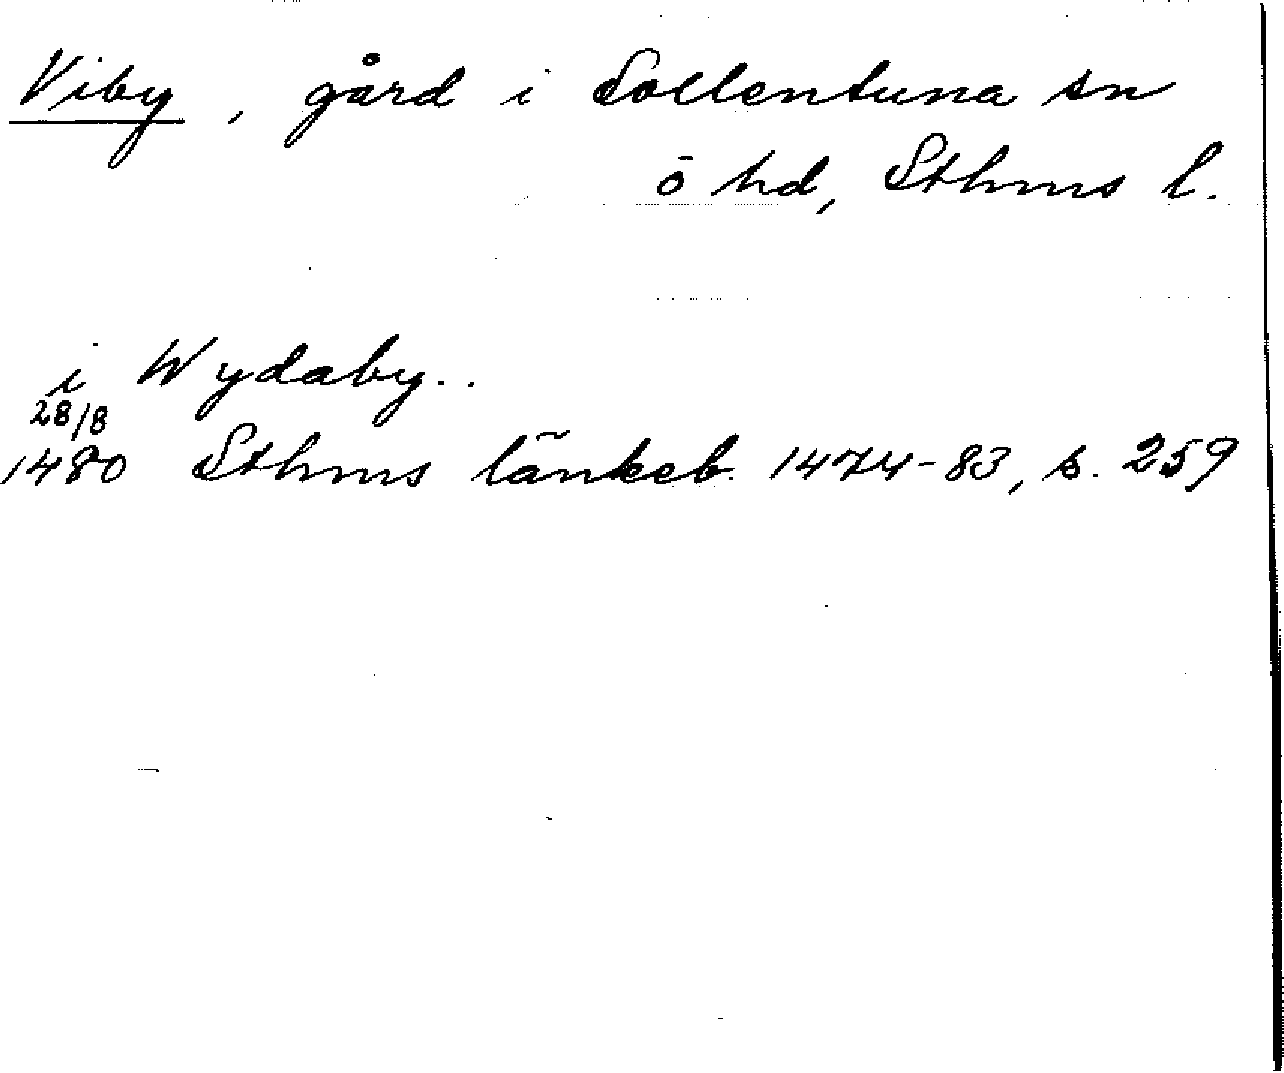 Viby, gård i Sollentuna sn
ō hd, Sthms l.
i Wydaby..
28/8
1480 Sthms tänkeb. 1474-83, s. 259